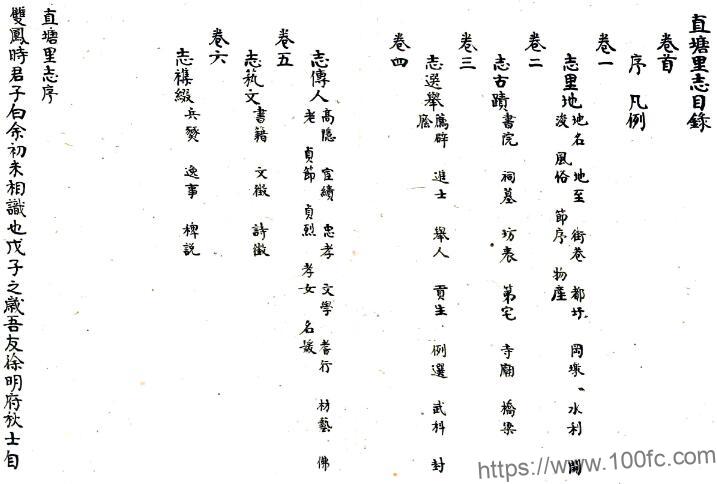 直塘里志目錄
卷首
序 凡例
卷一
志里地 地名 地至 街巷 都圩 岡墩 水利 開
浚 風俗 節序 物產
卷二
志古蹟 書院 祠墓 坊表 第宅 寺廟 橋梁
卷三
志選舉 薦辟 進士 舉人 貢生 例選 武科 封
廕
卷四
志傳人 高隱 宦績 忠孝 文學 耆行 材藝 佛
老 貞節 貞烈 孝女 名媛
卷五
志藝文 書籍 文徵 詩徵
卷六
志襍綴 兵燹 逸事 稗說
直塘里志序
雙鳳時君子白余初未相識也戊子之歲吾友徐明府秋士自
https://www.100fc.com